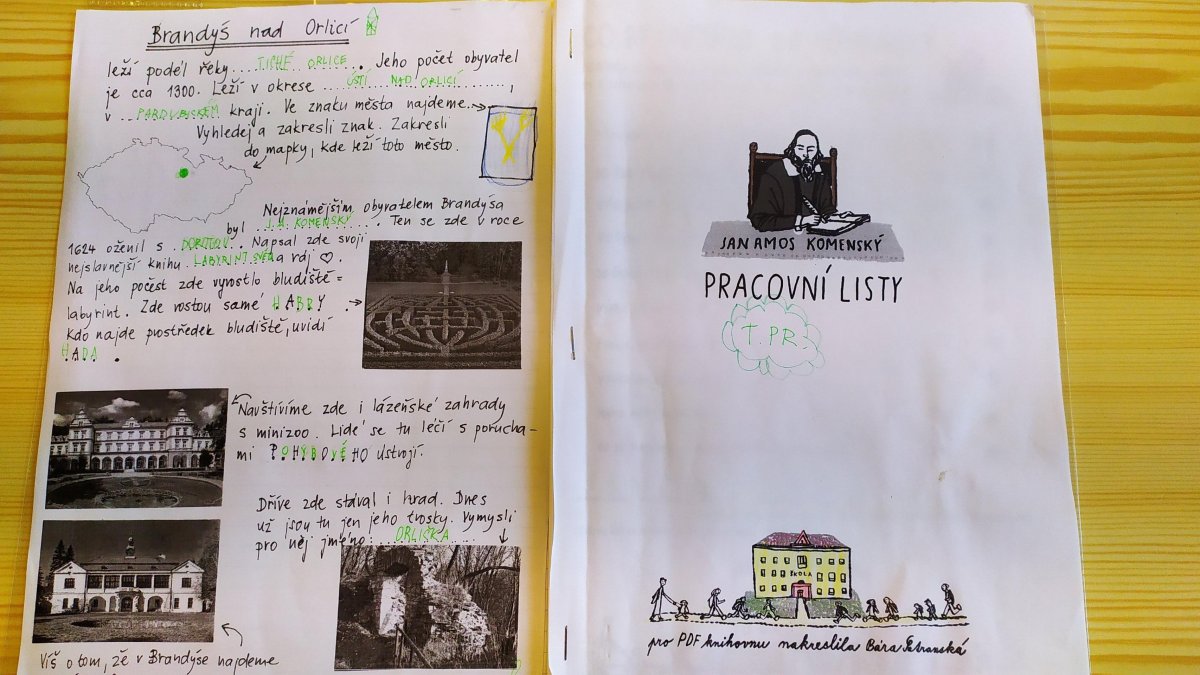 Brandýs nad Orlicí
leží podél řeky TICHÉ ORLICE. Jeho počet obyvatel
je cca 1300. Leží v okrese ÚSTÍ NAD ORLICÍ,
v PARDUBICKÉM kraji. Ve znaku město najdeme
Vyhledej a zakresli znak. Zakresli
do mapky, kde leží toto město.
Nejznámějším obyvatelem Brandýsa
byl J.A. KOMENSKÝ. Ten se zde v roce
1624 oženil s DOROTOU. Napsal zde svoji
nejslavnější knihu LABYRINT SVĚTA a ráj ♡.
Na jeho počest zde vyrostlo bludiště =
labyrint. Zde rostou samé HABRY.
Kdo najde prostředek bludiště, uvidí
HADA.
Navštívíme zde i lázeňské zahrady
s minizoo. Lidé se tu léčí s porucha-
mi POHYBOVÉHO ústrojí.
Dříve zde stával i hrad. Dnes
už jsou tu jen jeho trosky. Vymysli
pro něj jméno: ORLIČKA
Víš o tom, že v Brandýse najdeme
JAN AMOS KOMENSKÝ
PRACOVNÍ LISTY
T. PR.
ŠKOLA
pro PDF knihovnu nakreslila Bára Petranská